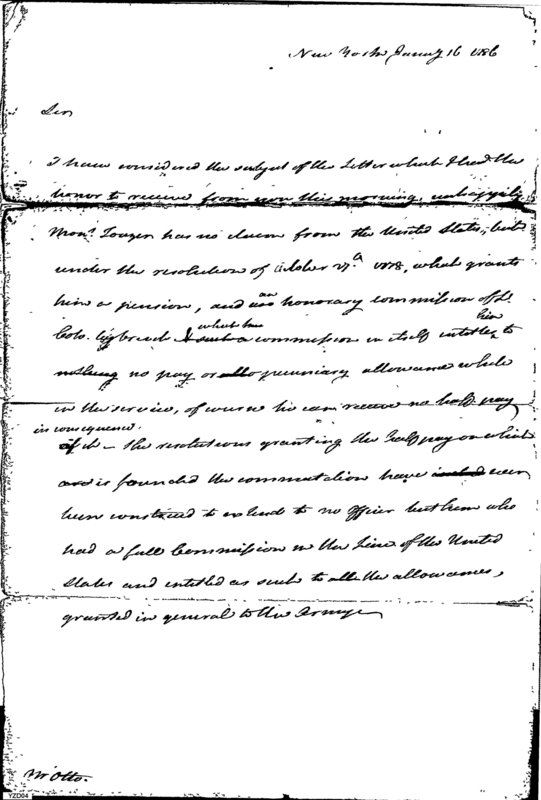 New York January 16 1786
Sir
I have considered the subject of the Letter which I had the
honor to receive from you this morning, unhappily
Monr. Touzen has no claim from the United States, but
under the resolution of October 27th 1778, which grants
him a pension, and an honorary commission of Lt.
Colo. by brevet which a commission in itself intitles him to
nothing no pay or pecuniary allowance while
in the service, of course he can receive no half pay
in consequence of it – the resolutions granting the half pay on which
is founded the commutation have ever
been construed to extend to no Officer but him who
had a full Commission in the Line of the United
States and entitled as such to all the allowances,
granted in general to the Army
Mr Otto.
YZD04